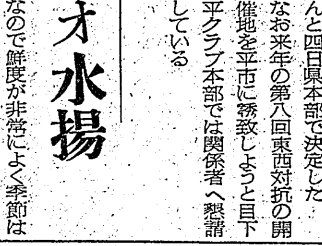 んと四日県本部で決定した
なお来年の第八回東西対抗の開
催地を平市に誘致しようと目下
平クラブ本部では関係者へ懇請
している
オ水揚
なので鮮度が非常によく季節は